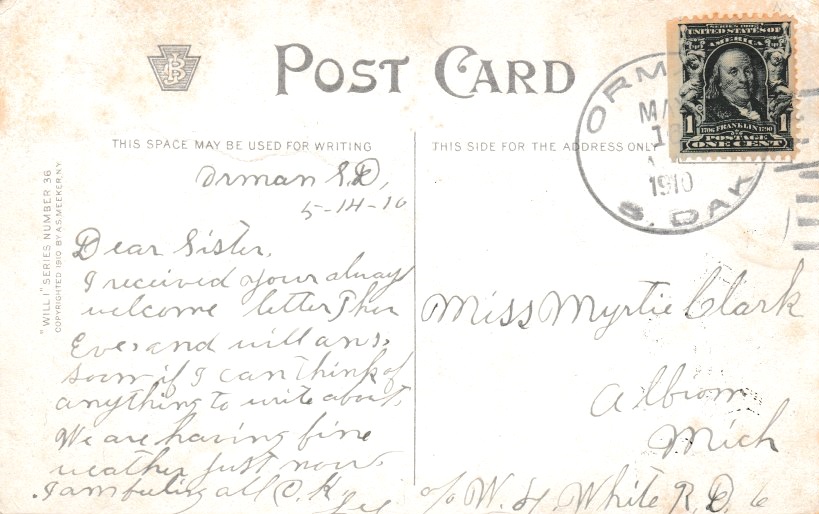 POST CARD
THIS SPACE MAY BE USED FOR WRITING
THIS SIDE FOR THE ADDRESS ONLY
"WILL I" SERIES NUMBER 36
COPYRIGHTED 1910 BY A.S. MEEKER. N.Y.
Orman S.D,
5-14-10
Dear Sister,
I received your alway
welcome letter Thur
Eve, and will ans,
soon if I can think of
anything to write about.
We are having fine
weather just now.
I am feeling all O.K.
Miss Myrtie Clark
Albion
Mich
c/o W. H. White R.D. 6
UNITED STATES OF
AMERICA
1 1706 FRANKLIN 1790 1
POSTAGE
ONE CENT
ORM
MA
1910
S. DAK